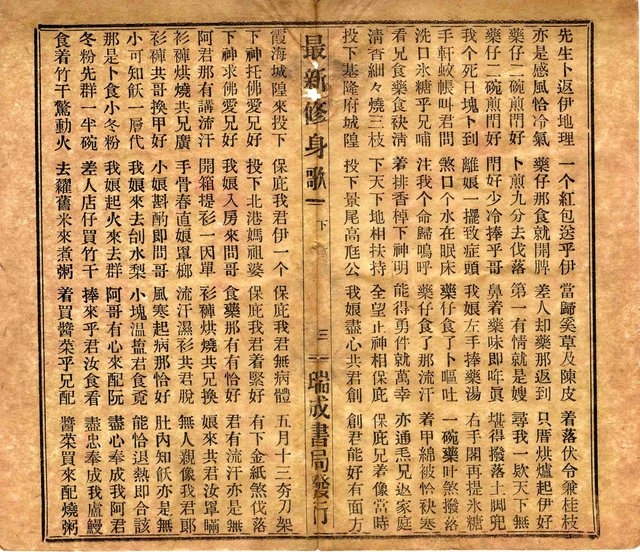 先生卜返伊地理 一个紅包送乎伊 當歸奚草及陳皮 着落伏令兼桂枝
亦是感風恰冷氣 藥仔那食就開脾 差人却藥那返到 只厝烘爐起伊好
藥仔二碗煎門好 卜煎九分去伐落 第一有情就是嫂 尋我一欵天下無
藥仔二碗煎門好 門好少冷捧乎哥 鼻着藥味即咤眞 堪得撥落土脚兜
我个死日塊卜到 離娘一擺致症頭 我娘左手捧藥湯 右手閣再提氷糖
手軒蚊帳叫君問 煞口个水在眠床 藥仔食了卜嘔吐 一碗藥叶煞撥落
洗口氷糖乎兄哺 注我个命歸嗚呼 藥仔食了那流汗 着甲綿被恰袂寒
看兄食藥食袂淸 着排香棹下神明 能得勇件就萬幸 亦通毛兄返家庭
淸香細々燒三枝 下天下地相扶持 全望正神相保庇 保庇兄着像當時
投下基隆府城隍 投下景尾高尫公 我娘盡心共君創 創君能好有面方
最新修身歌 下 三 瑞成書局發行
霞海城隍來投下 保庇我君伊一个 保庇我君無病體 五月十三夯刀架
下神托佛愛兄好 投下北港媽祖婆 保庇我君着緊好 有下金紙煞伐落
下神求佛愛兄好 我娘入房來問哥 食藥那有有恰好 君有流汗亦是無
阿君那有講流汗 開箱提衫一因單 衫褲烘燒共兄換 娘來共君汝罩瞞
衫褲烘燒共兄廣 手骨春直娘罩榔 流汗濕衫共君脫 無人親像我君郎
衫褲共哥換甲好 小娘斟酌即問哥 風寒起病那恰好 肚內知飫亦是無
小可知飫一層代 我娘來去刣水梨 小塊溫盐君食竟 能恰退熱即合該
那是卜食小冬粉 我娘起火來去群 阿哥有心來配阮 盡心奉成我阿君
冬粉先群一半碗 差人店仔買竹干 捧來乎君汝食看 盡忠奉成我盧鰻
食着竹干驚動火 去糴舊米來煮粥 着買醬菜乎兄配 醬菜買來配燒粥